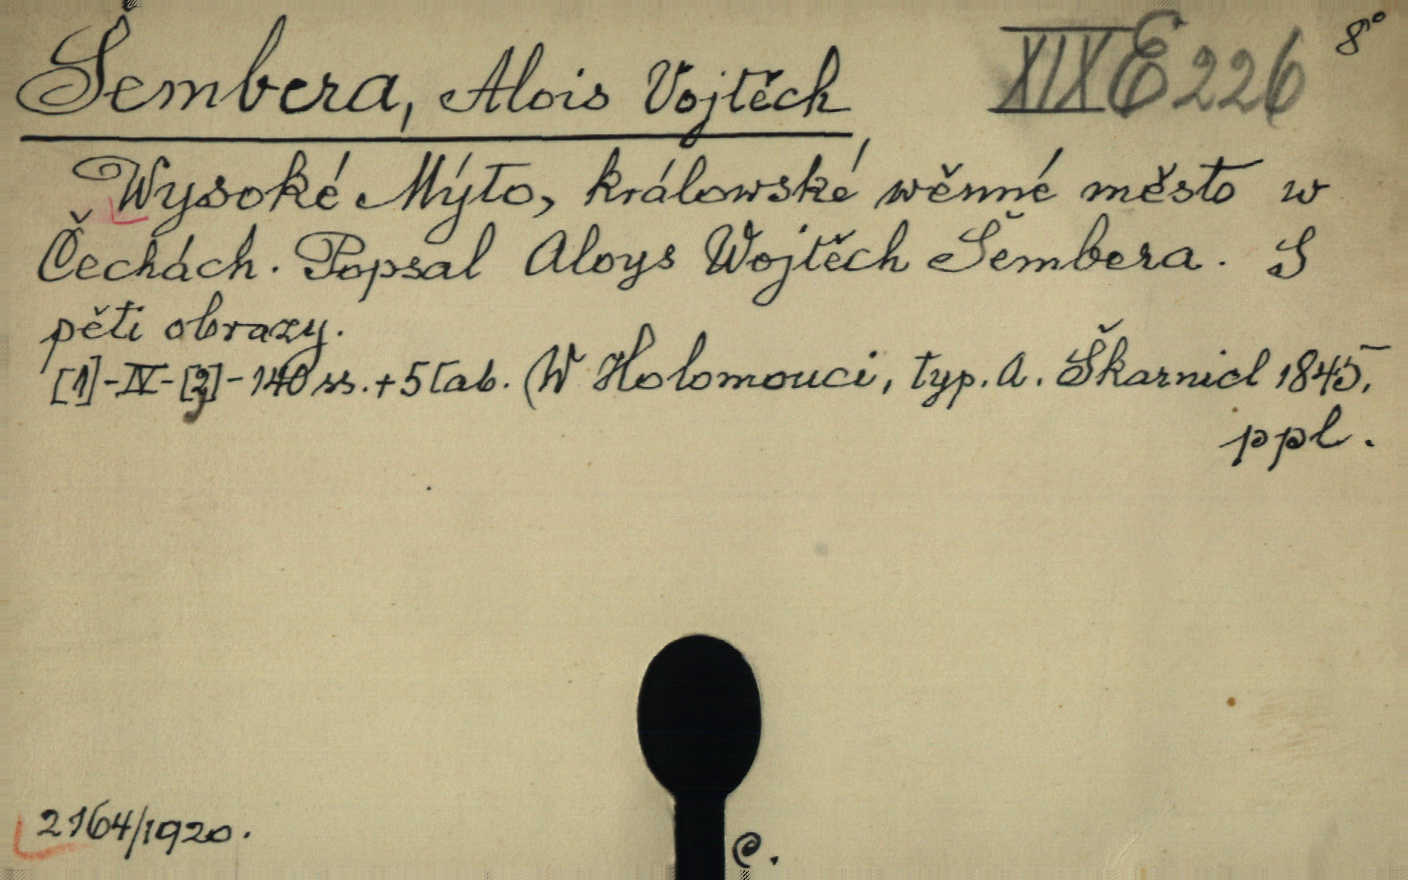 Šembera, Alois Vojtěch
XIX E 226
8°
Wysoké Mýto, králowské wěnné město w
Čechách. Popsal Aloys Wojtěch Šembera. S
pěti obrazy.
[1]-IV-[2]-140 ss.+5 tab. (W Holomouci, typ. A. Škarnicl 1845,
ppl.
2164/1920.
C.